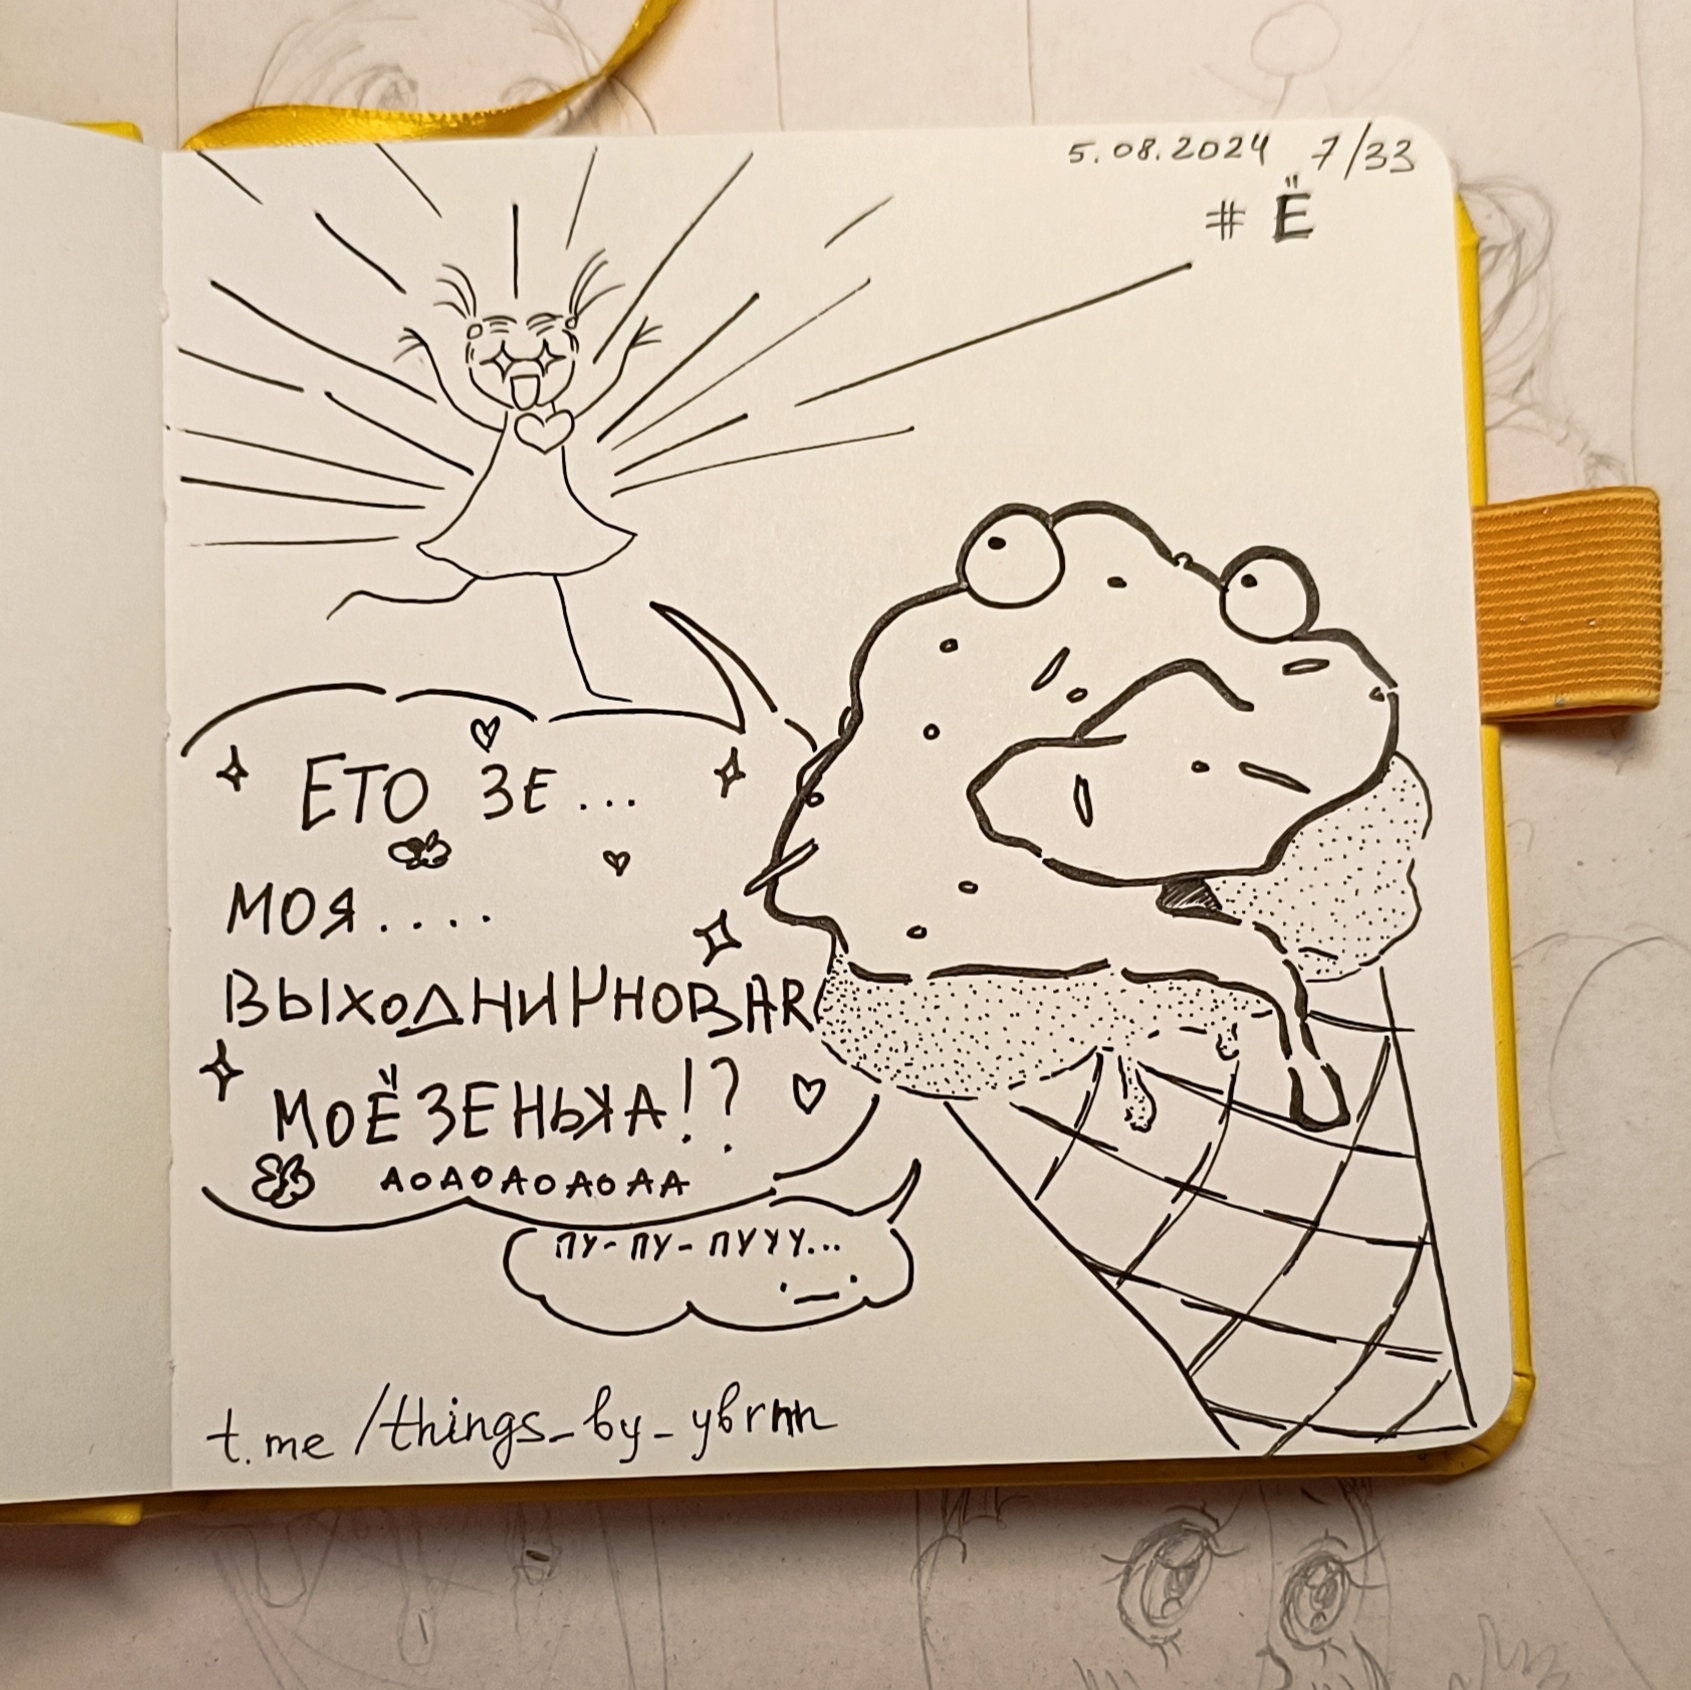 5.08.2024 7/33
# Ё
ЕТО ЗЕ...
МОЯ....
МОЁЗЕНЬКА!?
АОАОАОАОАА
ПУ-ПУ-ПУУУ...
t.me/things_by_ybrnn